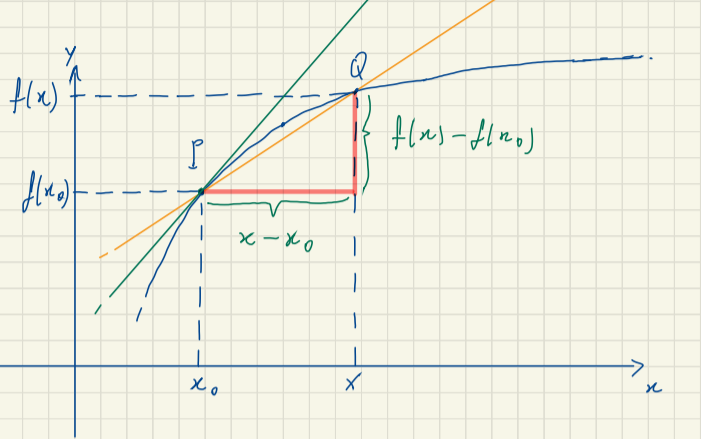 y
Q
f(x)
f(x) - f(x₀)
P
f(x₀)
x - x₀
x₀
x
x